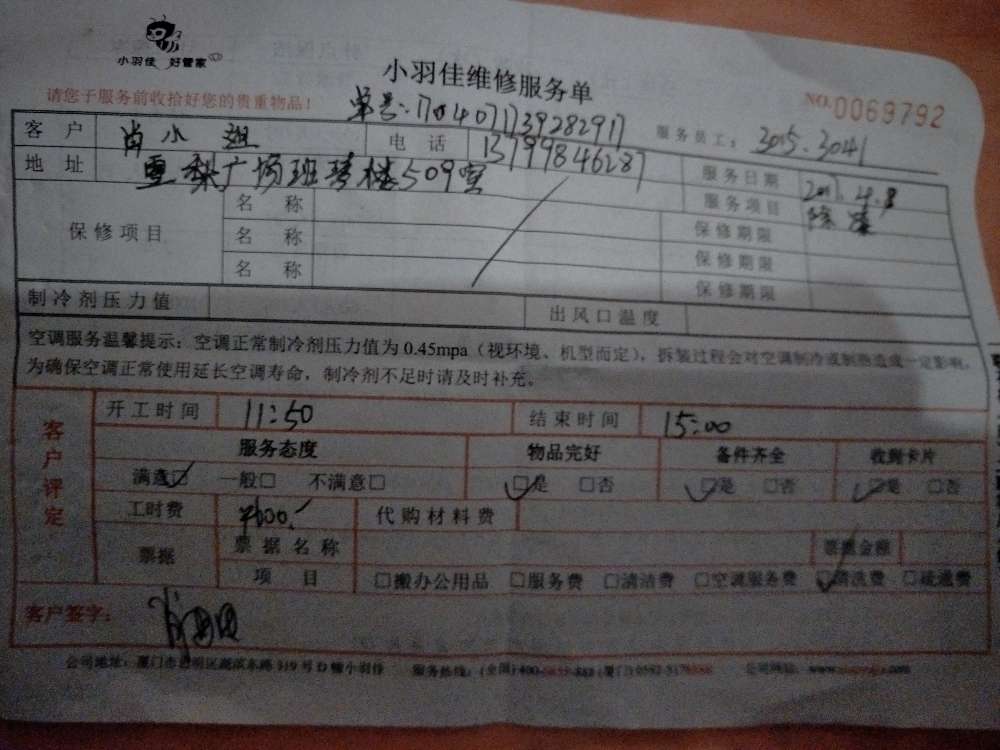 小羽佳 好管家
小羽佳维修服务单
请您于服务前收拾好您的贵重物品！
单号：170407739282917
NO.0069792
服务员工：3015.3041
客户 肖小姐 电话 13799846287
地址 广场班琴楼509室 服务日期 2017.4.8
服务项目
保修项目 名称 保修期限
名称 保修期限
名称 保修期限
制冷剂压力值 出风口温度
空调服务温馨提示：空调正常制冷剂压力值为0.45mpa（视环境、机型而定），拆装过程会对空调制冷或制热造成一定影响，
为确保空调正常使用延长空调寿命，制冷剂不足时请及时补充。
客户评定
开工时间 11:50 结束时间 15:00
服务态度 物品完好 备件齐全 收到卡片
满意☑ 一般□ 不满意□ ☑是 □否 ☑是 □否 ☑是 □否
工时费 ¥600.- 代购材料费
票据 票据名称 票据金额
项目 □搬办公用品 □服务费 □清洁费 □空调服务费 ☑清洗费 □疏通费
客户签字：
公司地址：厦门市思明区湖滨东路319号D幢小羽佳 服务热线：(全国)400- (厦门)0592-517 公司网址：www.